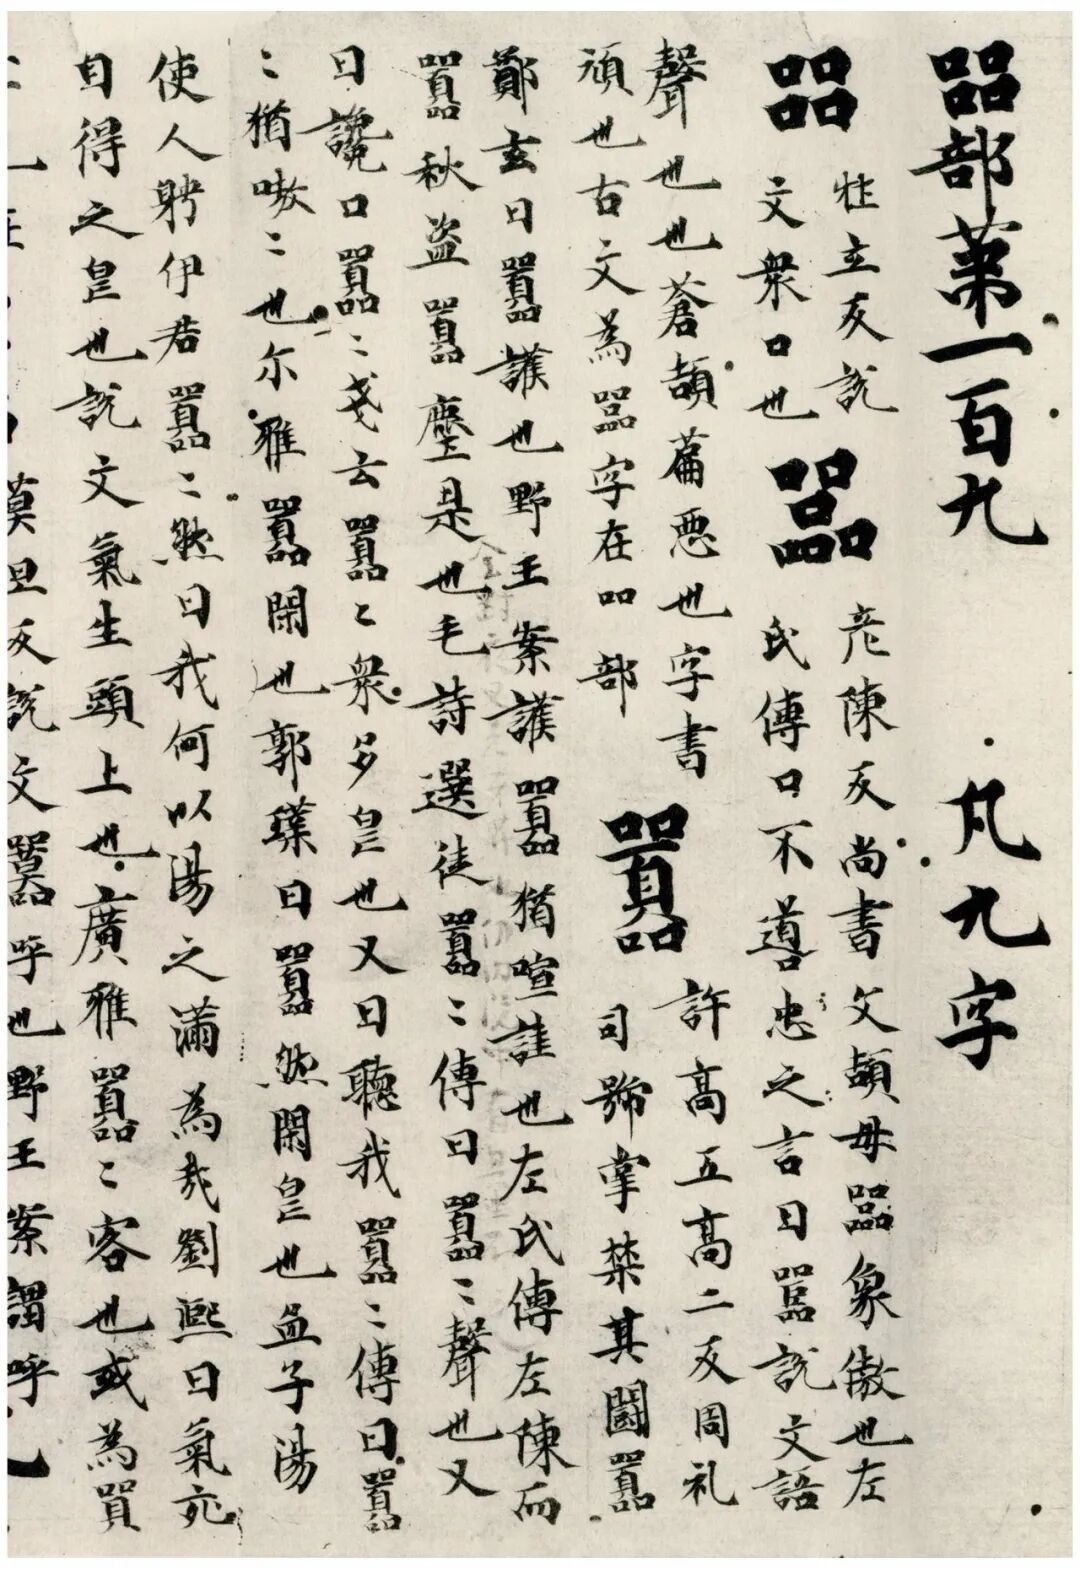 㗊部第一百九　凡九字
㗊
牡立反說
文衆口也
嚚
陳反尚書父頑母嚚象傲也左
氏傳口不導忠之言曰嚚說文語
聲也也蒼頡篇惡也字書
頑也古文為㗊字在㗊部
嚻
許高五高二反周礼
司號掌禁其鬭嚻
鄭玄曰嚻讙也野王案讙嚻猶喧譁也左氏傳左陳而
嚻秋盗嚻塵是也毛詩選徒嚻〻傳曰嚻〻聲也又
曰讒口嚻〻戔云嚻〻衆多皃也又曰聽我嚻〻傳曰嚻
〻猶嗷〻也尒雅嚻閑也郭璞曰嚻然閑皃也孟子湯
使人聘伊君嚻〻然曰我何以湯之滿為㢤劉熙曰氣死
自得之皃也說文氣生頭上也廣雅嚻〻客也或為買
漠旦反說文嚻呼也野王案謂呼